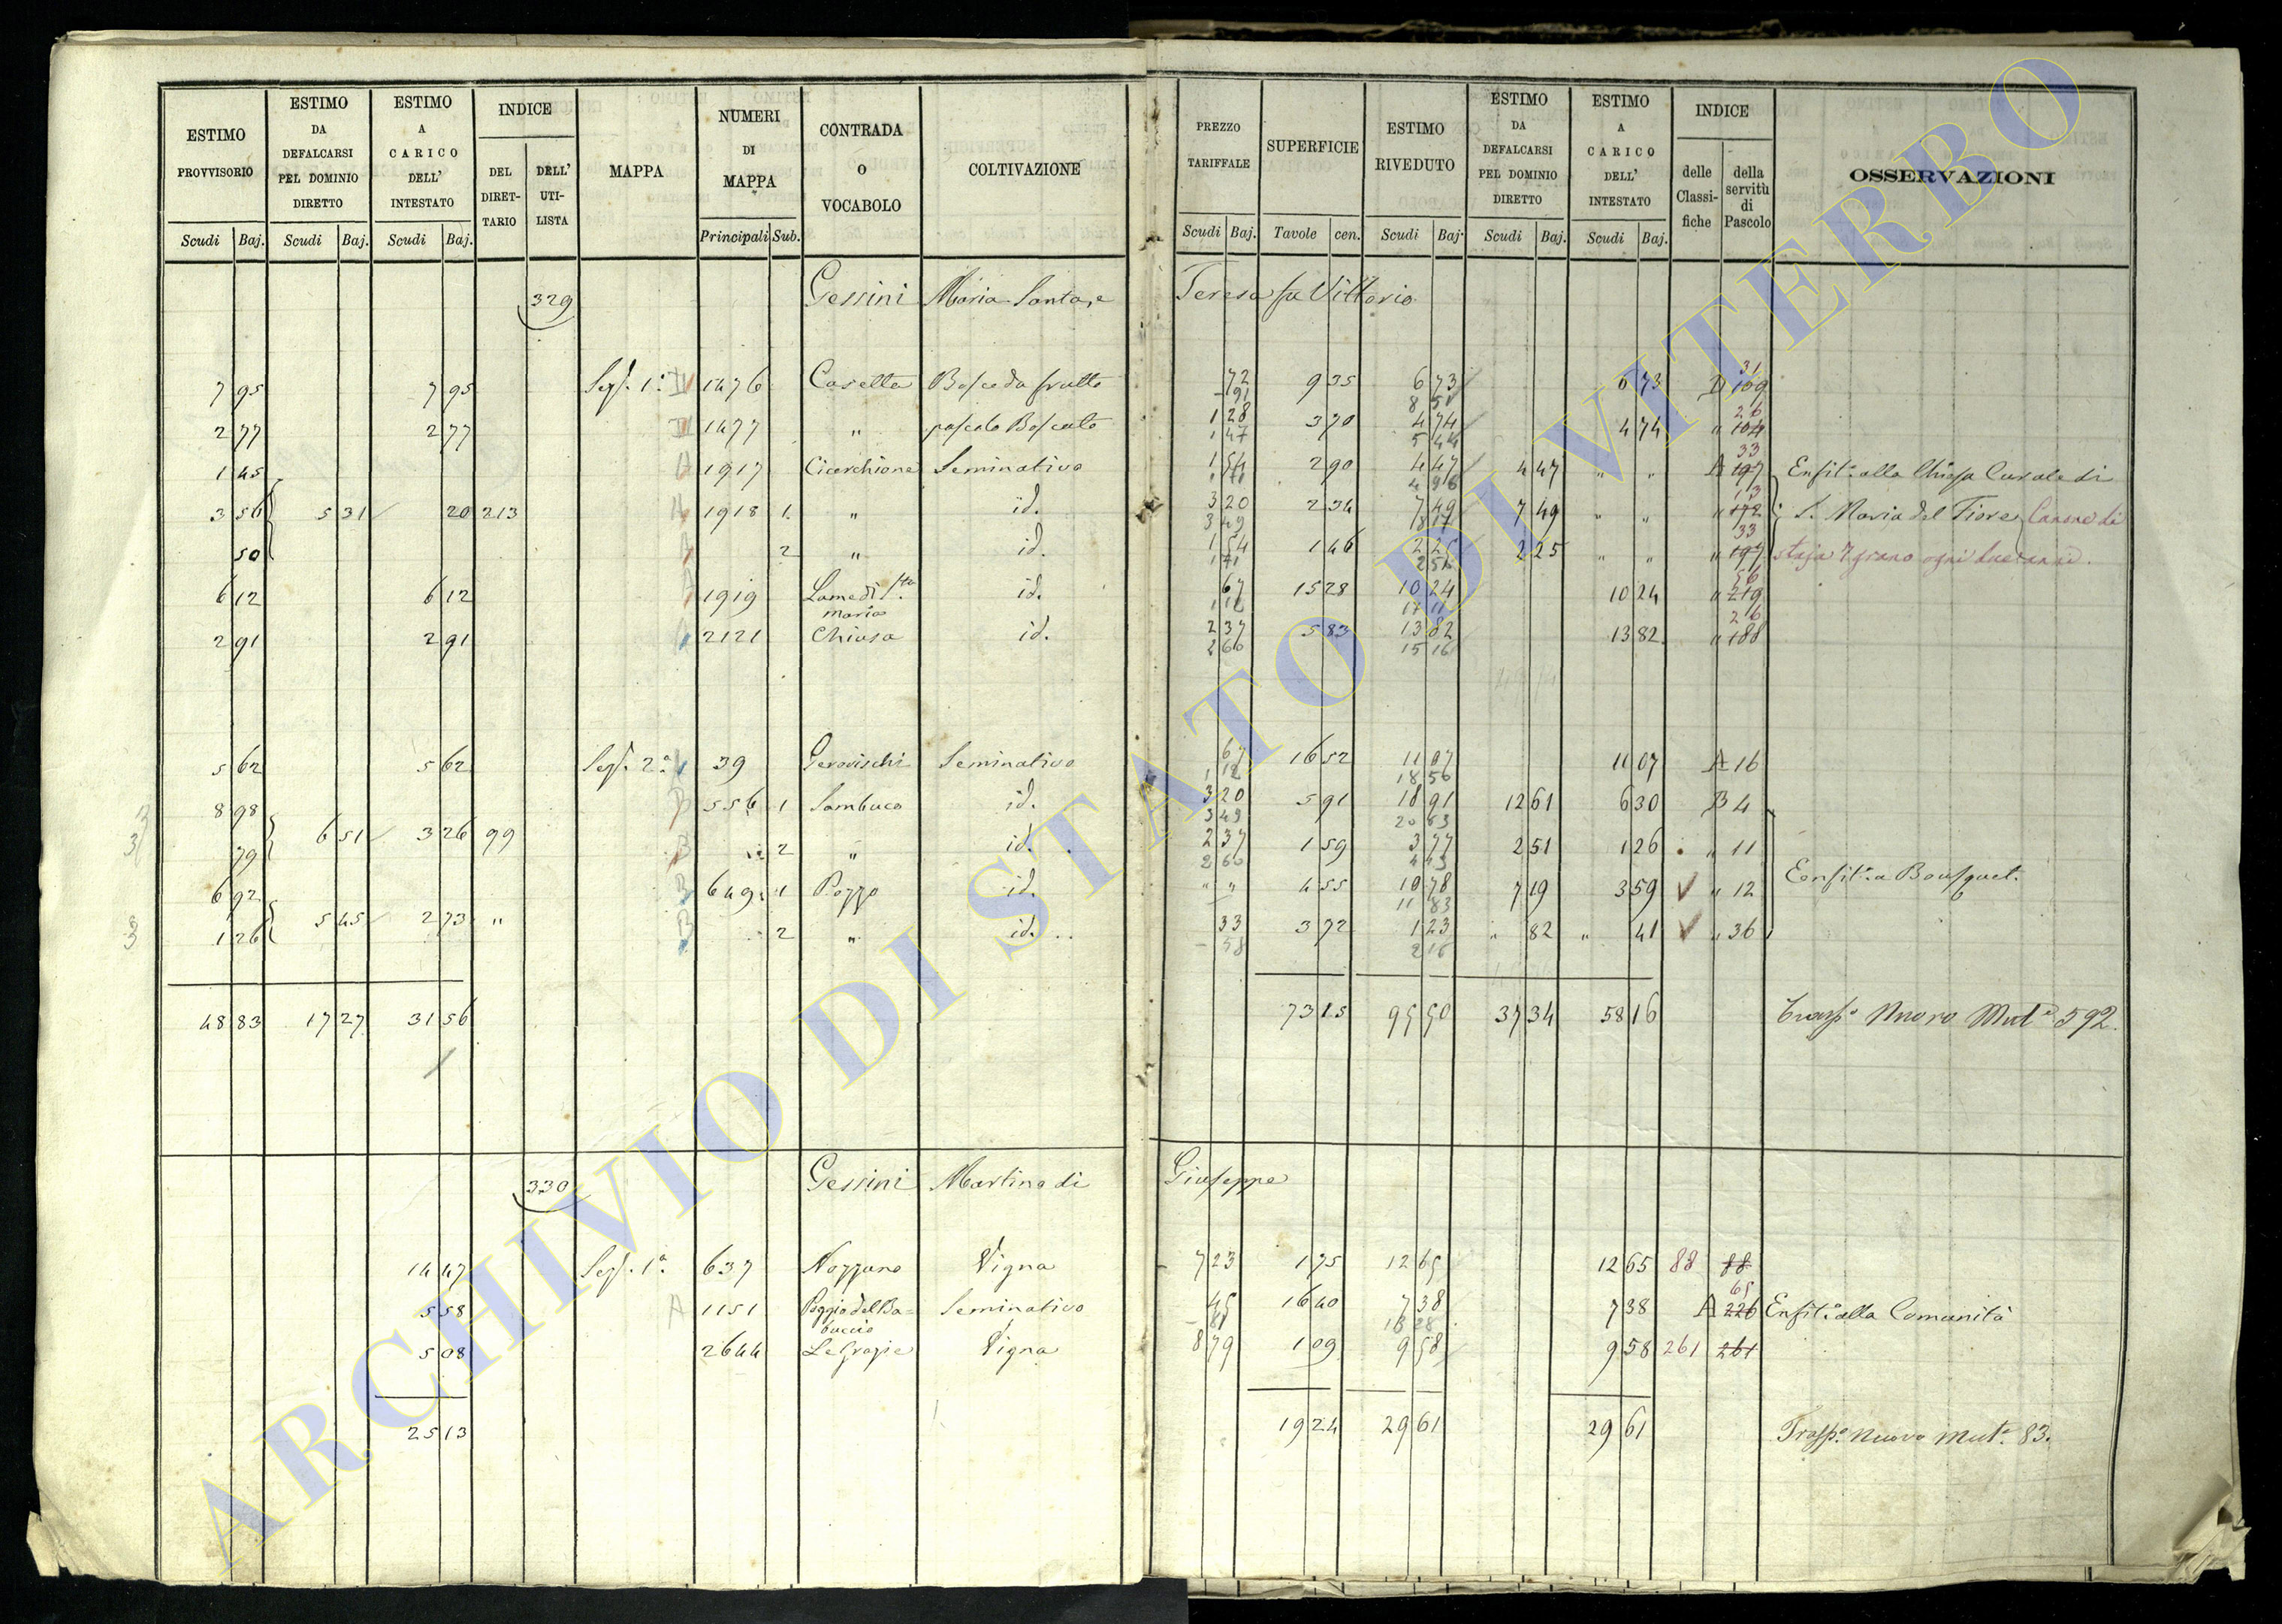 ESTIMO PROVVISORIO Scudi Baj.
ESTIMO DA DEFALCARSI PEL DOMINIO DIRETTO Scudi Baj.
ESTIMO A CARICO DELL' INTESTATO Scudi Baj.
INDICE DEL DIRET-TARIO DELL' UTI-LISTA
MAPPA
NUMERI DI MAPPA Principali Sub.
CONTRADA O VOCABOLO
COLTIVAZIONE
PREZZO TARIFFALE Scudi Baj.
SUPERFICIE Tavole cen.
ESTIMO RIVEDUTO Scudi Baj.
ESTIMO DA DEFALCARSI PEL DOMINIO DIRETTO Scudi Baj.
ESTIMO A CARICO DELL' INTESTATO Scudi Baj.
INDICE delle Classi-fiche della servitù di Pascolo
OSSERVAZIONI
329 Gessini Maria Santa, e Teresa fu Vittorio
7 95 7 95 Sez. 1a 1476 Casella Bosco da frutto 72 9 35 6 73 6 73 D 109 31
91 8 51
2 77 2 77 1477 " pascolo Boscato 1 28 3 70 4 74 4 74 " 104 26
1 47 5 44
1 45 1917 Cicerchione Seminativo 1 54 2 90 4 47 4 47 " " A 197 33 Enfit.a alla Chiesa Curale di
1 71 4 96
3 56 5 31 20 213 1918 1 " id. 3 20 2 34 7 49 7 49 " " " 172 13 S. Maria del Fiore Canone di
3 49 8 17
50 2 " id. 1 54 1 46 2 25 2 25 " " " 197 33 staja 7 grano ogni due anni.
1 71
6 12 6 12 1919 Lame di S.ta Maria id. 67 15 28 10 24 10 24 " 219 56
1 12 17 11
2 91 2 91 2121 Chiusa id. 2 37 5 83 13 82 13 82 " 188 26
2 60 15 16
5 62 5 62 Sez. 2a 39 Seminativo 67 16 52 11 07 11 07 A 16
1 12 18 50
8 98 556 1 Sambuco id. 3 20 5 91 18 91 12 61 6 30 B 4
3 49 20 63
79 6 51 3 26 99 2 " id. 2 37 1 59 3 77 2 51 1 26 " 11
2 60 4 13
6 92 649 1 Pozzo id. " " 4 55 10 78 7 19 3 59 " 12 Enfit.a a Bousquet.
11 83
1 26 5 45 2 73 " 2 " id. 33 3 72 1 23 " 82 " 41 " 36
58 2 16
48 83 17 27 31 56 73 15 95 50 37 34 58 16 Trasp.o Nuovo Mut.e 592.
330 Gessini Martino di Giuseppe
14 47 Sez. 1a 637 Nozzano Vigna 7 23 1 75 12 65 12 65 88 88
5 58 A 1151 Poggio del Ba=buccio Seminativo 45 16 40 7 38 7 38 A 226 65 Enfit.a alla Comunità
81 13 28
5 08 2644 Le Grazie Vigna 8 79 1 09 9 58 9 58 261 261
25 13 19 24 29 61 29 61 Trasp.o Nuovo Mut.e 83.
ARCHIVIO DI STATO DI VITERBO